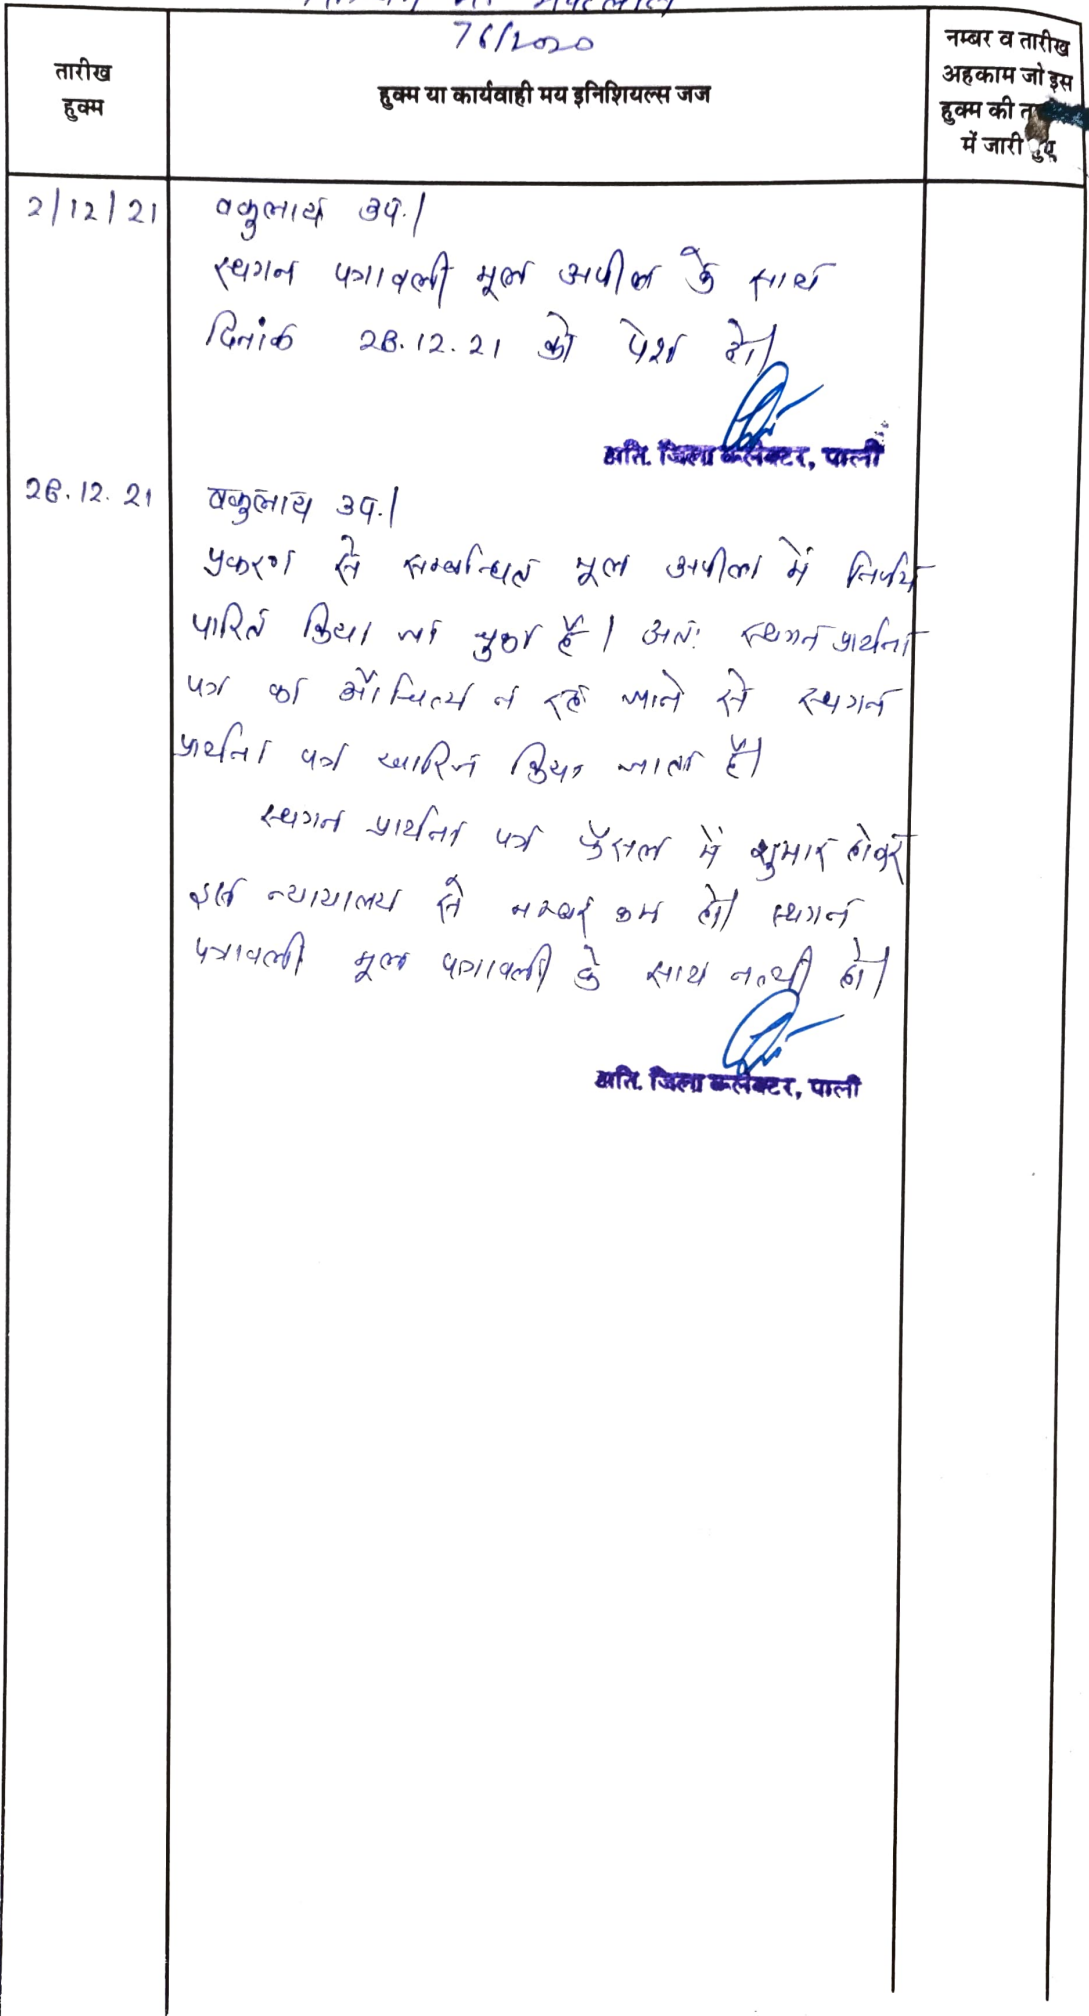 76/2020
तारीख
हुक्म
हुक्म या कार्यवाही मय इनिशियल्स जज
नम्बर व तारीख
अहकाम जो इस
हुक्म की
में जारी हुए
2/12/21
वकुलाय उप.।
स्थगन पत्रावली मूल अपील के साथ
दिनांक 28.12.21 को पेश हो।
अति. जिला कलेक्टर, पाली
28.12.21
वकुलाय उप.।
प्रकरण से सम्बन्धित मूल अपील में निर्णय
पारित किया जा चुका है। अतः स्थगन प्रार्थना
पत्र का औचित्य न रह जाने से स्थगन
प्रार्थना पत्र खारिज किया जाता है।
स्थगन प्रार्थना पत्र फैसल में शुमार होकर
इस न्यायालय से नम्बर कम हो। स्थगन
पत्रावली मूल पत्रावली के साथ नत्थी हो।
अति. जिला कलेक्टर, पाली